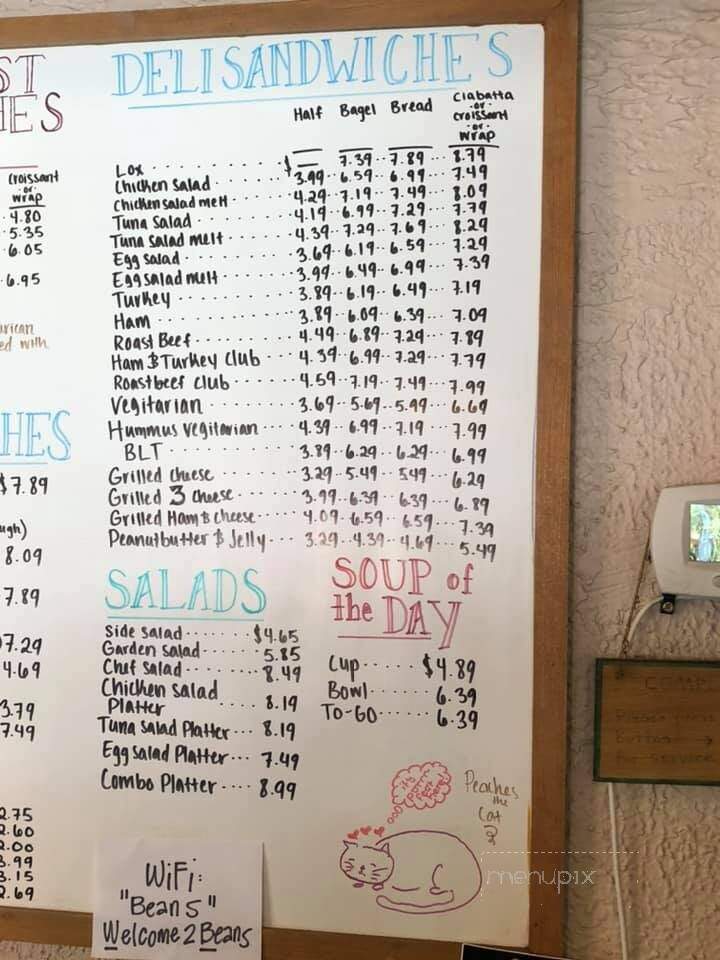 ST
IES
croissant
·or·
wrap
4.80
5.35
6.05
6.95
HES
$7.89
8.09
7.89
7.29
4.69
3.79
7.49
2.75
2.60
2.00
3.99
3.15
2.69
DELI SANDWICHES
Half Bagel Bread Ciabatta
·or·
croissant
·or·
wrap
Lox $ — 7.39 7.89 8.79
Chicken Salad 3.99 6.59 6.99 7.49
Chicken salad melt 4.29 7.19 7.49 8.09
Tuna Salad 4.19 6.99 7.29 7.79
Tuna salad melt 4.39 7.29 7.69 8.29
Egg salad 3.69 6.19 6.59 7.29
Egg salad melt 3.99 6.49 6.99 7.39
Turkey 3.89 6.19 6.49 7.19
Ham 3.89 6.09 6.39 7.09
Roast Beef 4.49 6.89 7.29 7.89
Ham & Turkey Club 4.39 6.99 7.29 7.79
Roastbeef Club 4.59 7.19 7.49 7.99
Vegitarian 3.69 5.69 5.99 6.69
Hummus vegitarian 4.39 6.99 7.19 7.99
BLT 3.89 6.29 6.29 6.99
Grilled cheese 3.29 5.49 5.49 6.29
Grilled 3 cheese 3.99 6.39 6.39 6.89
Grilled Ham & cheese 4.09 6.59 6.59 7.39
Peanutbutter & Jelly 3.29 4.39 4.69 5.49
SALADS
Side Salad $4.65
Garden Salad 5.85
Chef Salad 8.49
Chicken Salad
Platter 8.19
Tuna Salad Platter 8.19
Egg Salad Platter 7.49
Combo Platter 8.99
SOUP of
the DAY
Cup $4.89
Bowl 6.39
TO-GO 6.39
Peaches
the
Cat
WiFi:
"Beans"
Welcome2Beans
menupix